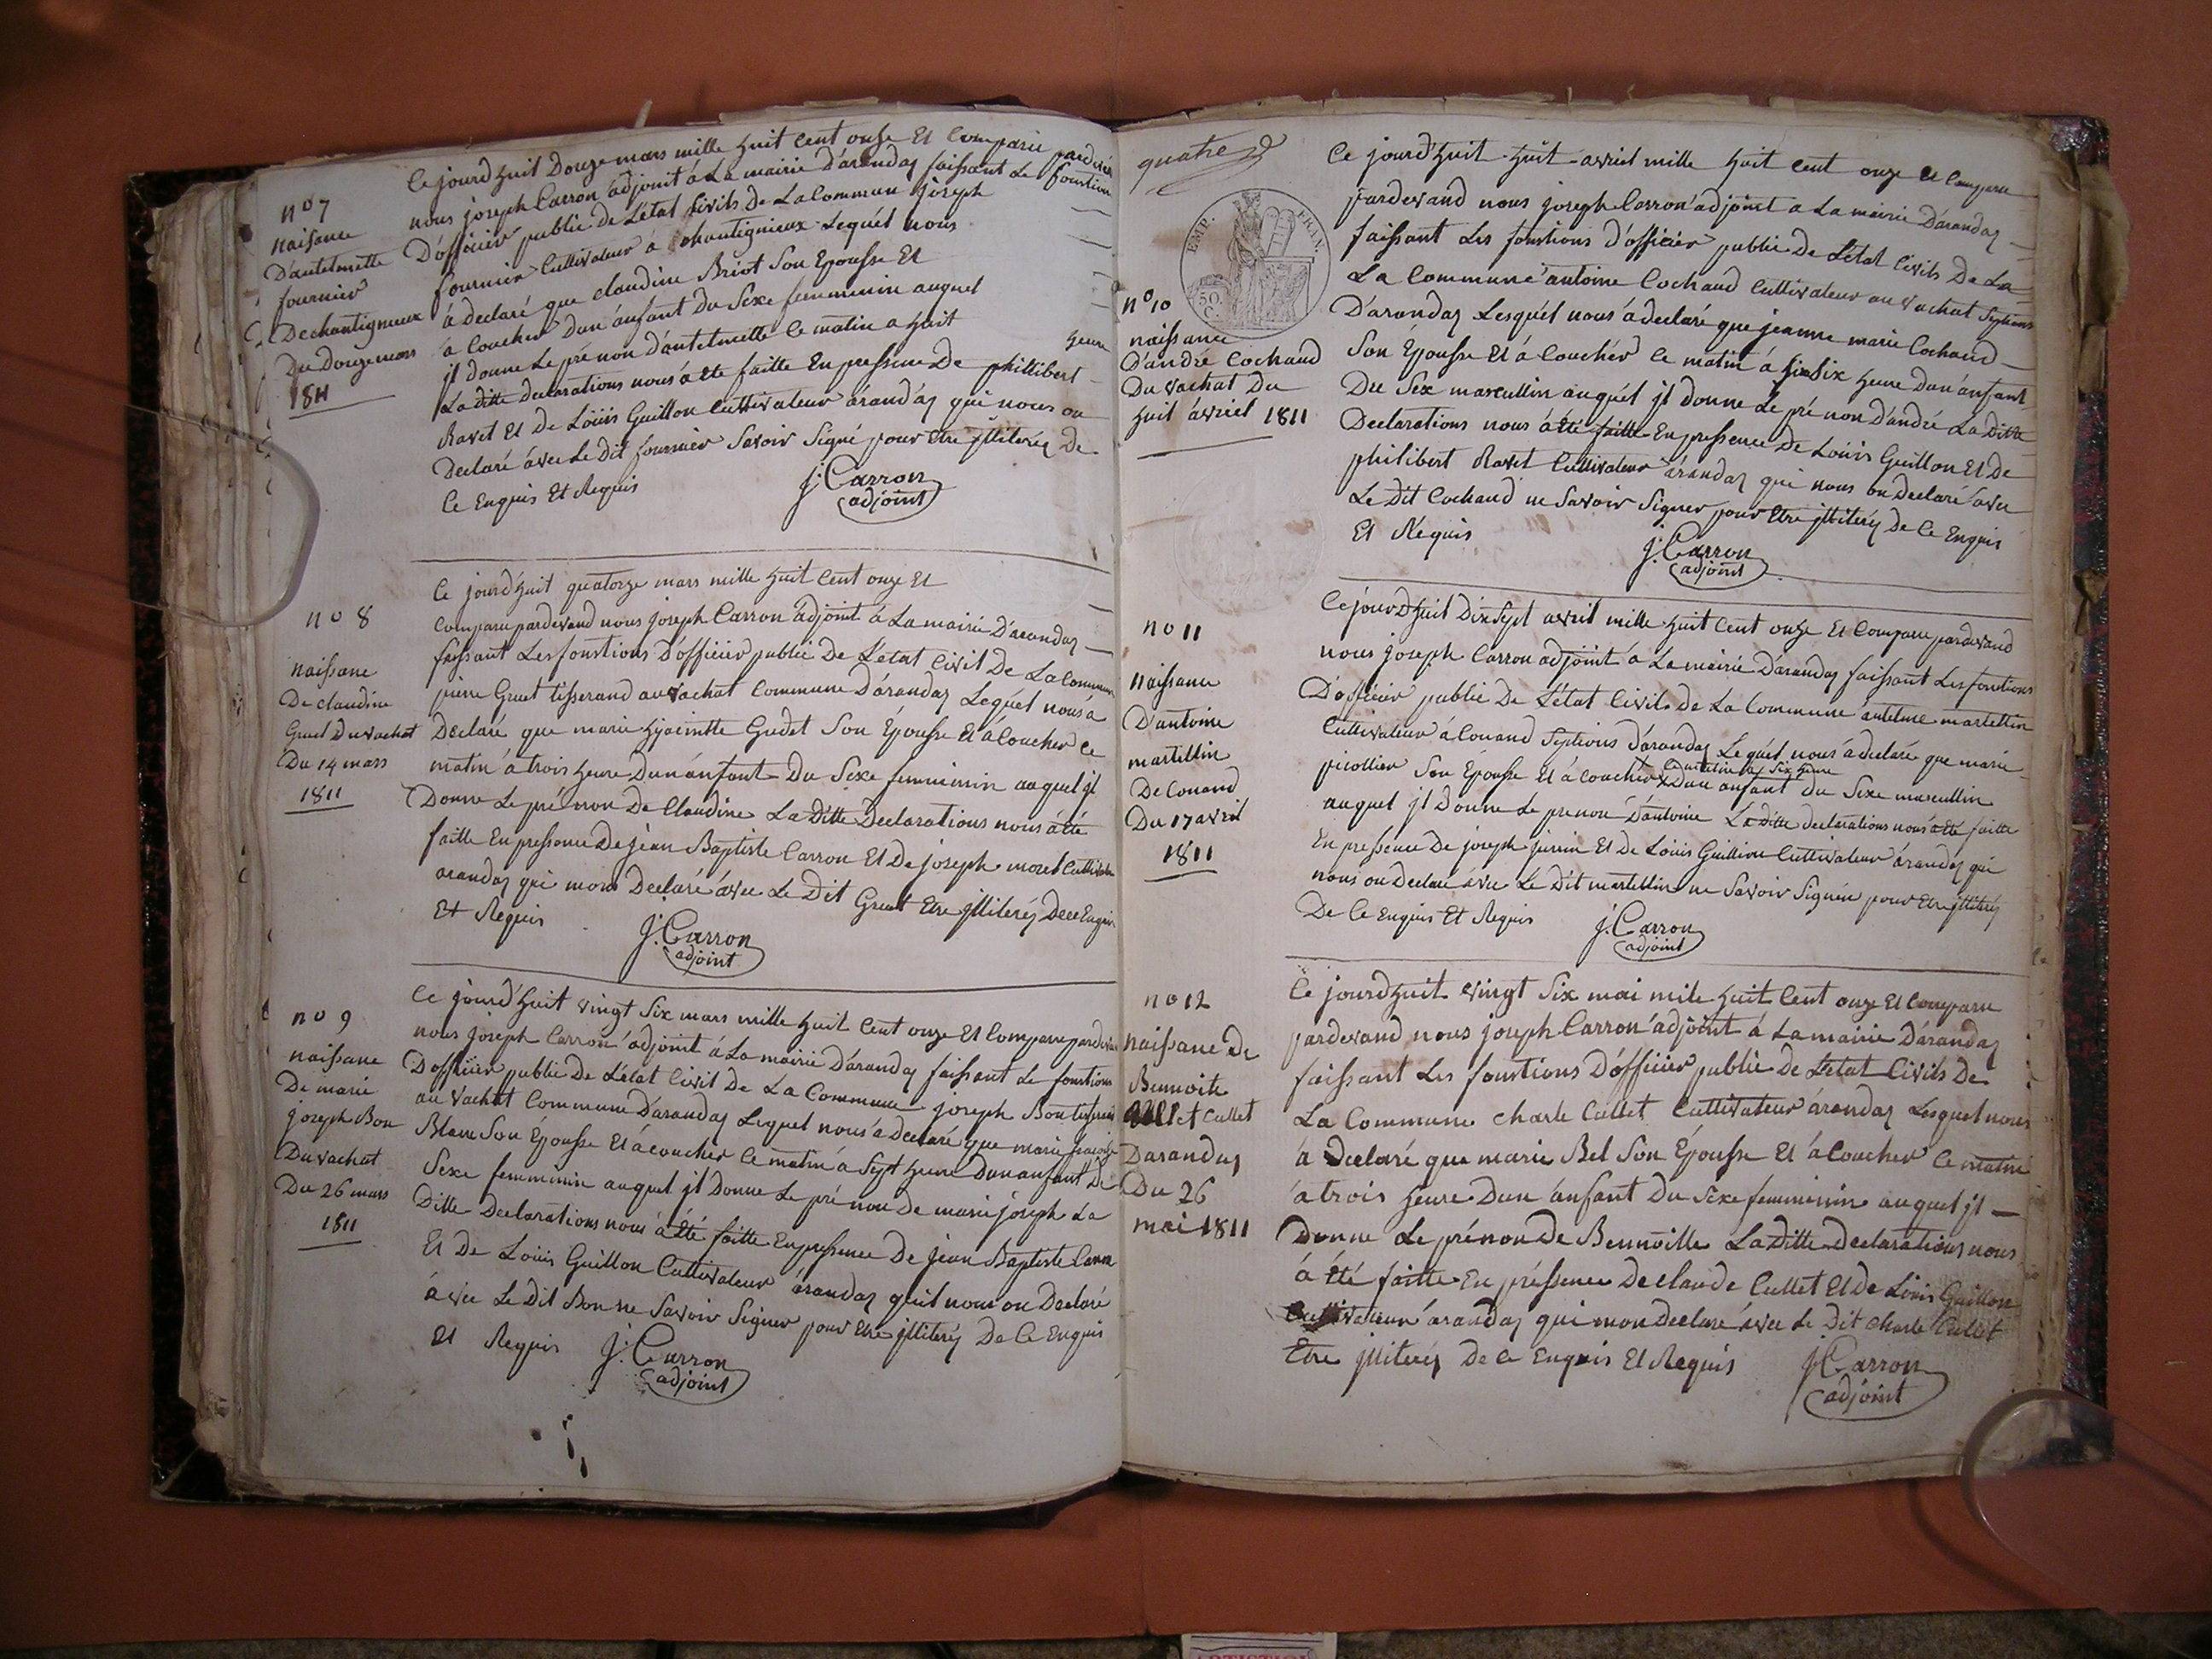 n° 7
naissance
D'antelmette
fournier
Dechantignieux
Du Douze mars
1811
Ce jourd'huit Douze mars mille huit Cent onze Et Comparu pardevan
nous joseph Carron adjoint á La mairie D'arandas faissant Le fonstion
D'officier public De L'état Civils De La Commun joseph
fournier Cultivateur á Chantignieux Lequél nous
á declaré que claudine Briot Son Epousse Et
a Coucher Dun ánfant Du Sexe femminin auquel
jl donne Le pré non D'antelmette Ce matin a huit heure
La ditte declarations nous a été faitte En pressence De phillibert
Ravet Et De Loüis Guillon Cultivateur árandas qui nous on
Declaré ávec Le Dit fournier Savoir Signé pour Etre jlliterés De
Ce Enquis Et Requis
J. Carron
adjoint
n° 8
naissane
De claudine
Gruet Du vachat
Du 14 mars
1811
Ce jourd'huit quatorze mars mille huit Cent onze Et
Comparu pardevand nous joseph Carron adjoint á La mairie D'arandas
faissant Les fonstions D'officier public De L'état Civil De La Commun
pierre Gruet tisserand au vachat Commune D'árandas Lequél nous a
Declaré que marie hyacintte Gudet Son Épousse Et á Coucher Ce
matin á trois heure Dun ánfant Du Sexe femminin auquel jl
Donne Le pré non De Claudine La Ditte Declarations nous á été
faitte En pressence De jean Baptiste Carron Et De joseph moret Cultivate
arandas qui mont Declaré ávec Le Dit Gruet Etre jlliterés De ce Enquis
Et Requis
J. Carron
adjoint
n° 9
naissane
De marie
joseph Bon
Du vachat
Du 26 mars
1811
Ce jourd'huit vingt Six mars mille huit Cent onze Et Comparu pardevan
nous joseph Carron adjoint á La mairie D'arandas faissant Le fonstions
D'officier public De L'état Civil De La Commune joseph Bon tisserand
au vachat Commune D'arandas Lequel nous a declaré que marie françoise
Blanc Son Epousse Et á coucher Ce matin á Sept heure Dun anfant De
Sexe femminin auquel jl Donne Le pré non de marie joseph La
Ditte Declarations nous á été faitte En pressence De jean Baptiste Carron
Et De Loüis Guillon Cultivateur árandas quil nous on Declaré
ávec Le Dit Bon ne Savoir Signer pour Etre jlliterés De Ce Enquis
Et Requis
J. Carron
adjoint
quatre
EMP. FRAN.
50.
C.
n° 10
naissance
D'andré Cochaud
Du vachat Du
huit ávriel 1811
Ce jourd'huit huit avriel mille huit Cent onze Et Comparu
pardevand nous joseph Carron adjoint a La mairie D'arandas
faissant Les fonstions D'officier public De L'état Civils De La
La Commune antoine Cochaud Cultivateur au vachat Sections
D'arandas Lesquél nous á declaré que jeanne marie Cochaud
Son Épousse Et á Couchér Ce matin á Six heure Dun ánfant
Du Sex mascullin auquél jl donne Le pré non D'andré La Ditte
Declarations nous á été faitte En pressence De Loüis Guillon Et De
philibert Ravet Cultivateur árandas qui nous on Declaré avec
Le Dit Cochaud ne Savoir Signer pour Etre jlliterés De Ce Enquis
Et Réquis
J. Carron
adjoint
n° 11
naissance
D'antoine
martellin
De Conand
Du 17 avril
1811
Ce jourd'huit Dix Sept avril mille huit Cent onze Et Comparu pardevand
nous joseph Carron adjoint a La mairie D'arandas faissant Les fonstions
D'officier public De L'état Civils De La Commune antelme martellin
Cultivateur á Conand Sections D'arandas Lequél nous á declaré que marie
picollier Son Epousse Et á Coucher Ce matin a Six heure Dun anfant du Sexe mascullin
auquel jl Donne Le pre non D'antoine La Ditte declarations nous a été faitte
En pressence De joseph juvin Et de Loüis Guillion Cultivateur árandas qui
nous on Declaré ávec Le Dit martellin ne Savoir Signér pour Etre jlliterés
De Ce Enquis Et Requis
J. Carron
adjoint
n° 12
naissane de
Bennoite
Cullet
Darandas
Du 26
mai 1811
Ce jourd'huit vingt Six mai mile huit Cent onze Et Comparu
pardevand nous joseph Carron adjoint á La mairie D'arandas
faissant Les fonstions D'officier public De L'état Civils De
La Commune Charle Cullet Cultivateur árandas Lesquel nous
á Declaré que marie Bel Son Épousse Et á Coucher Ce matin
á trois heure Dun ánfant Du Sexe femminin auquel jl
Donne Le prénon De Bennoitte La Ditte Declarations nous
á été faitte En préssence De claude Cullet Et de Loüis Guillon
Cultivateur árandas qui mon Declaré ávec Le Dit Charle Cullet
Etre jlliterés De Ce Enquis Et Requis
J. Carron
adjoint